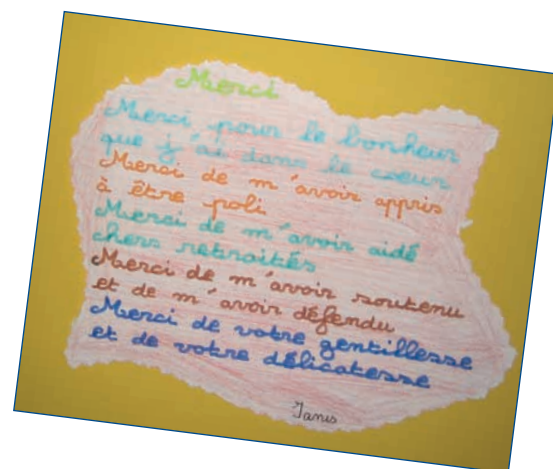 Merci
Merci pour le bonheur
que j'ai dans le coeur
Merci de m'avoir appris
à être poli
Merci de m'avoir aidé
chers retraités
Merci de m'avoir soutenu
et de m'avoir défendu
Merci de votre gentillesse
et de votre délicatesse
Janis